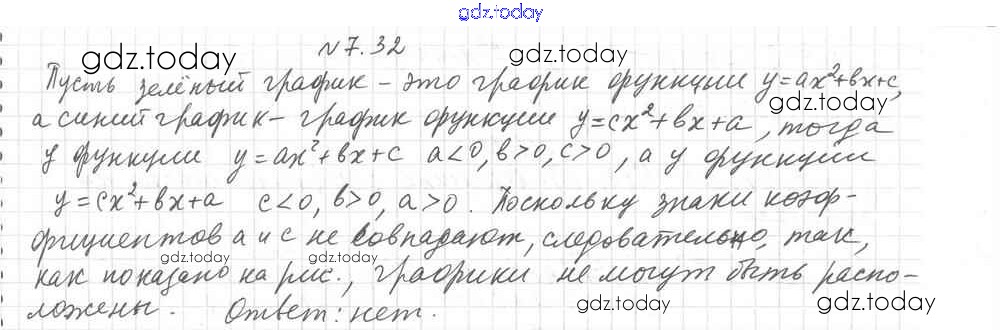 gdz.today
№7.32
gdz.today gdz.today
Пусть зелёный график – это график функции y=ax²+bx+c,
gdz.today
а синий график – график функции y=cx²+bx+a, тогда
у функции y=ax²+bx+c a<0, b>0, c>0, а у функции
y=cx²+bx+a c<0, b>0, a>0. Поскольку знаки коэф-
фициентов a и c не совпадают, следовательно, так,
gdz.today gdz.today
как показано на рис., графики не могут быть распо-
ложены. Ответ: нет.
gdz.today gdz.today